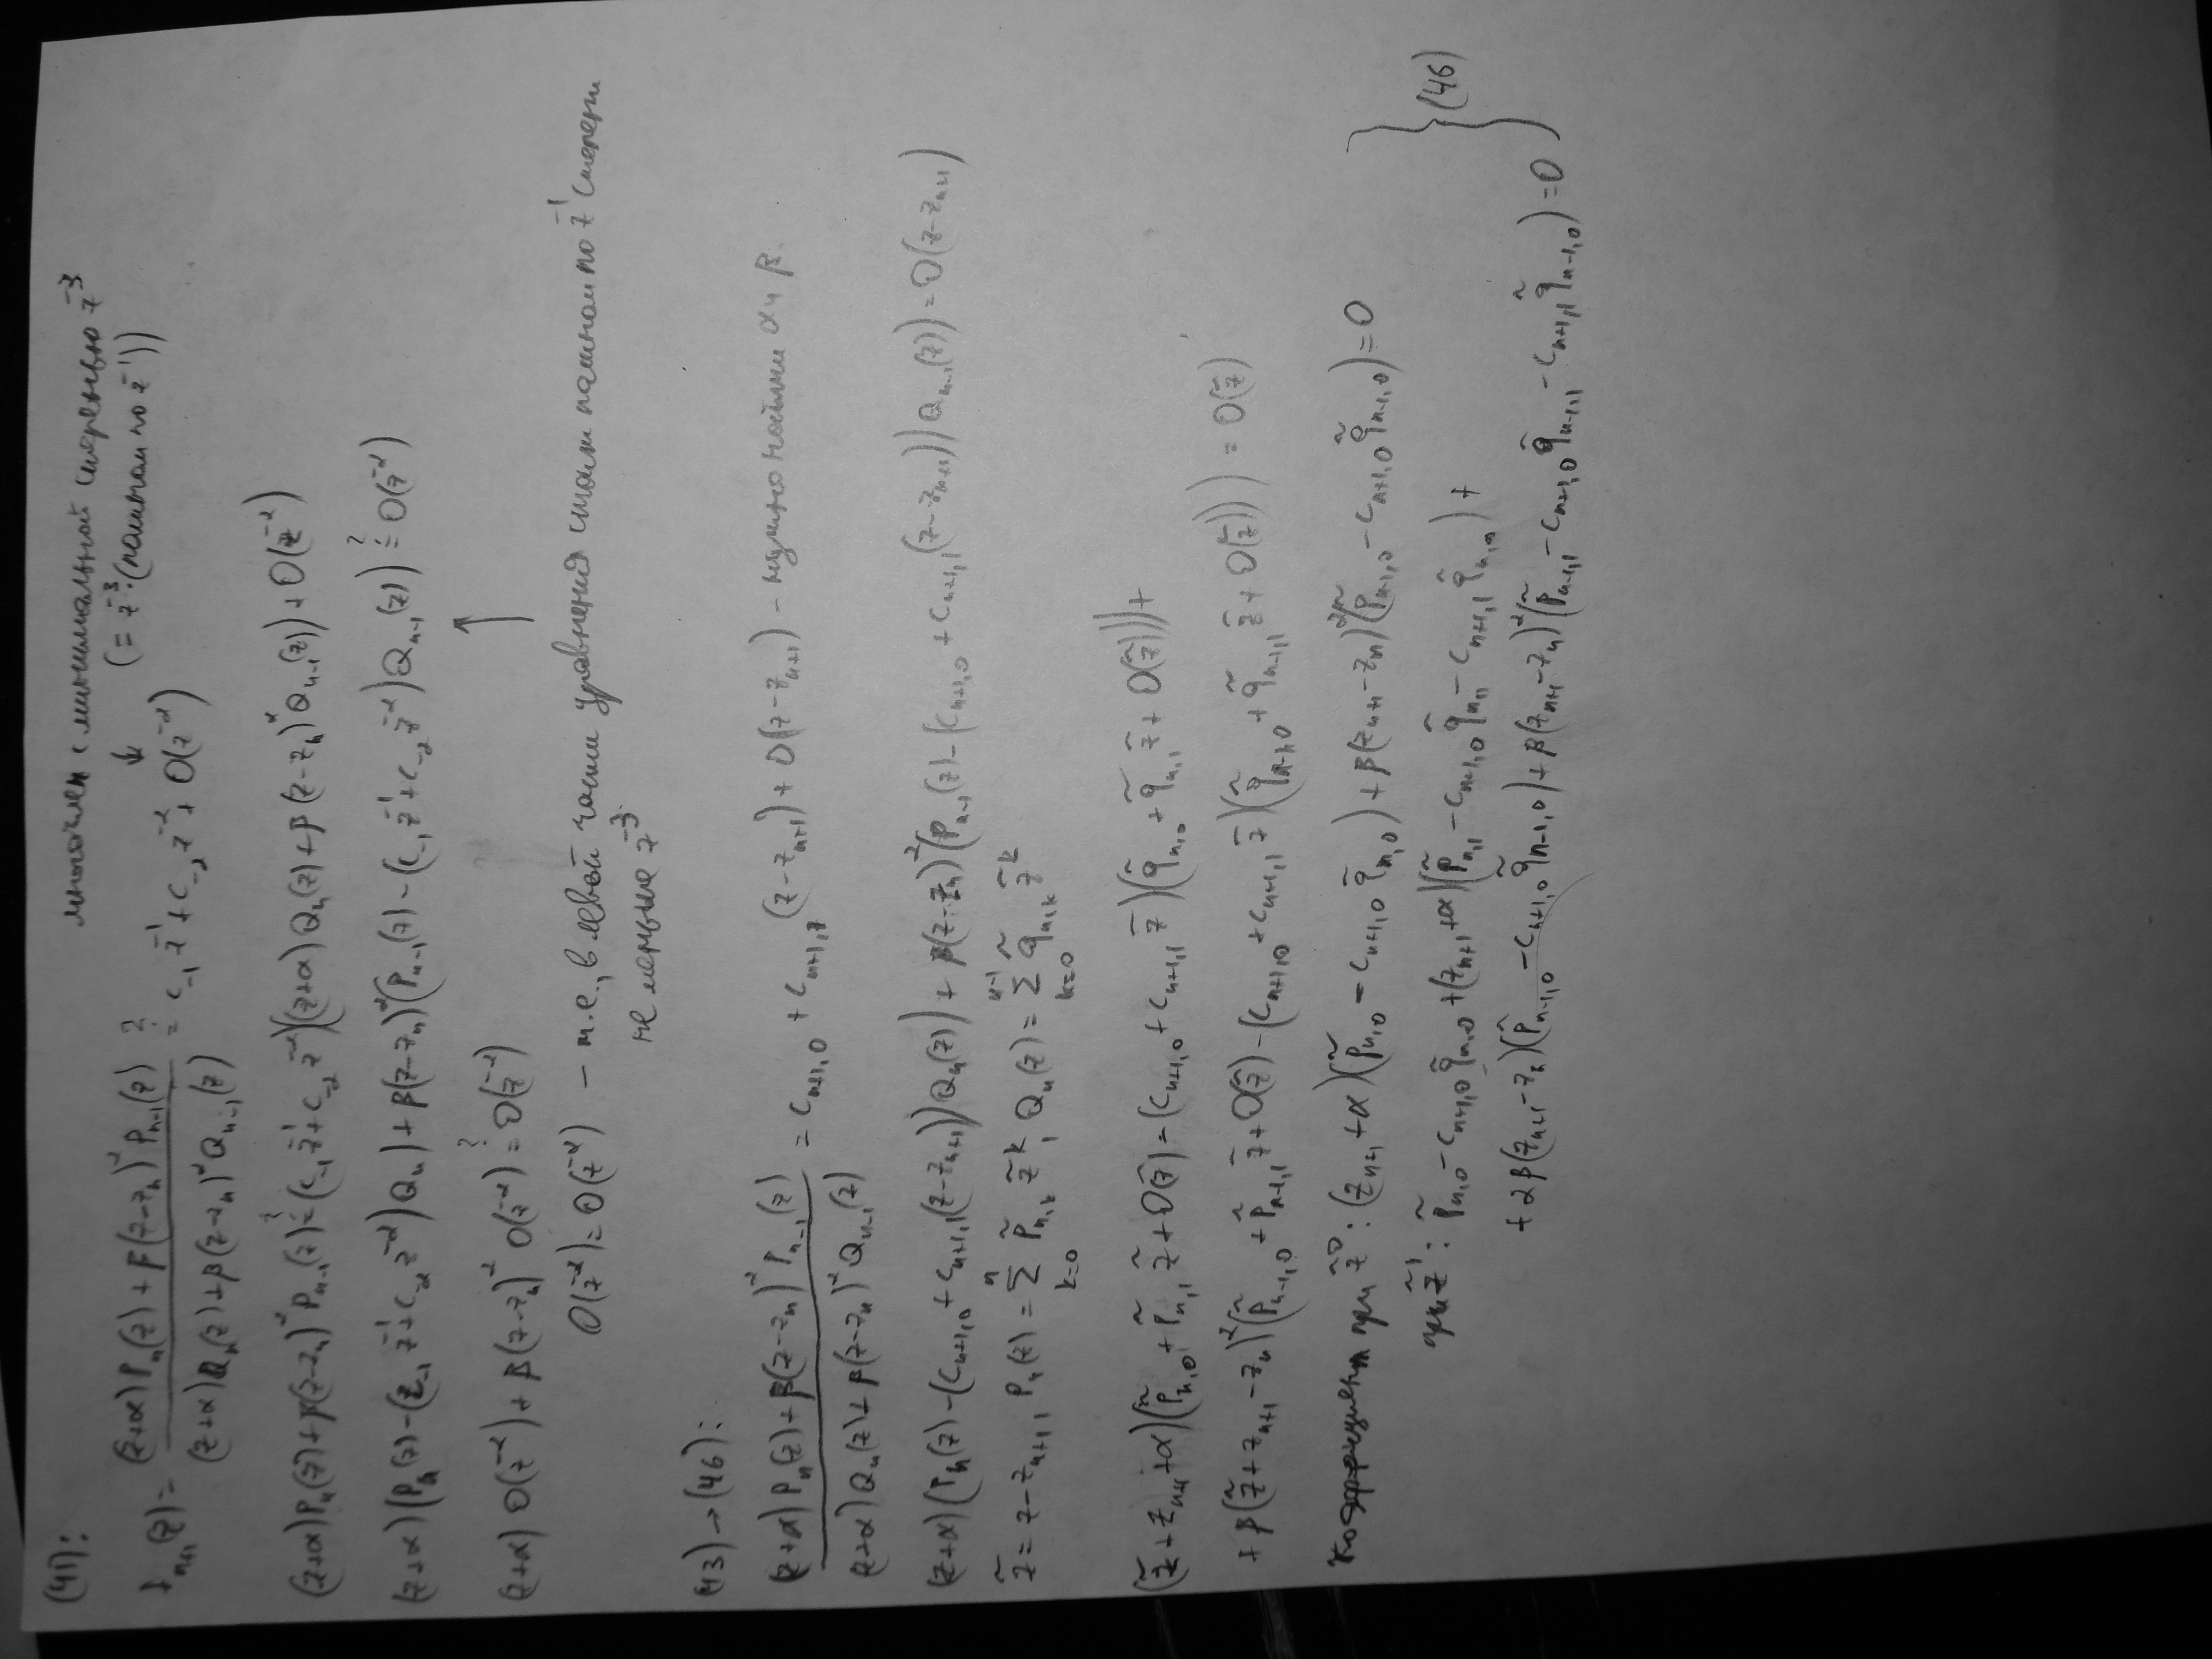 (41):
многочлен с минимальной степенью z^{-3}
(= z^{-3}·(полином по z^{-1}))
f_{n+1}(z) = \frac{(z+α)P_n(z) + β(z-z_n)^2 P_{n-1}(z)}{(z+α)Q_n(z) + β(z-z_n)^2 Q_{n-1}(z)} \overset{?}{=} c_{-1} z^{-1} + c_{-2} z^{-2} + O(z^{-2})
(z+α)P_n(z) + β(z-z_n)^2 P_{n-1}(z) \overset{?}{=} (c_{-1} z^{-1} + c_{-2} z^{-2})((z+α)Q_n(z) + β(z-z_n)^2 Q_{n-1}(z)) + O(z^{-2})
(z+α)(P_n(z) - (c_{-1} z^{-1} + c_{-2} z^{-2})Q_n) + β(z-z_n)^2(P_{n-1}(z) - (c_{-1} z^{-1} + c_{-2} z^{-2})Q_{n-1}(z)) \overset{?}{=} O(z^{-2})
(z+α) O(z^{-2}) + β(z-z_n)^2 O(z^{-2}) \overset{?}{=} O(z^{-2}) ↑
O(z^{-2}) = O(z^{-2}) – т.е., в левой части уравнения стоит полином по z^{-1} степени
не меньше z^{-3}.
(43)→(46):
\frac{(z+α)P_n(z) + β(z-z_n)^2 P_{n-1}(z)}{(z+α)Q_n(z) + β(z-z_n)^2 Q_{n-1}(z)} = c_{n+1,0} + c_{n+1,1}(z-z_{n+1}) + O(z-z_{n+1}) – нужно найти α и β.
(z+α)(P_n(z) - (c_{n+1,0} + c_{n+1,1}(z-z_{n+1}))Q_n(z)) + β(z-z_n)^2(P_{n-1}(z) - (c_{n+1,0} + c_{n+1,1}(z-z_{n+1}))Q_{n-1}(z)) = O(z-z_{n+1})
\tilde z = z - z_{n+1}, P_n(z) = \sum_{k=0}^{n} \tilde p_{n,k} \tilde z^k, Q_n(z) = \sum_{k=0}^{n-1} \tilde q_{n,k} \tilde z^k
(\tilde z + z_{n+1} + α)(\tilde p_{n,0} + \tilde p_{n,1} \tilde z + O(\tilde z) - (c_{n+1,0} + c_{n+1,1} \tilde z)(\tilde q_{n,0} + \tilde q_{n,1} \tilde z + O(\tilde z))) +
+ β(\tilde z + z_{n+1} - z_n)^2(\tilde p_{n-1,0} + \tilde p_{n-1,1} \tilde z + O(\tilde z) - (c_{n+1,0} + c_{n+1,1} \tilde z)(\tilde q_{n-1,0} + \tilde q_{n-1,1} \tilde z + O(\tilde z))) = O(\tilde z)
Коэффициент при \tilde z^0: (z_{n+1} + α)(\tilde p_{n,0} - c_{n+1,0} \tilde q_{n,0}) + β(z_{n+1} - z_n)^2(\tilde p_{n-1,0} - c_{n+1,0} \tilde q_{n-1,0}) = 0
при \tilde z^1: \tilde p_{n,0} - c_{n+1,0} \tilde q_{n,0} + (z_{n+1} + α)(\tilde p_{n,1} - c_{n+1,0} \tilde q_{n,1} - c_{n+1,1} \tilde q_{n,0}) +
+ 2β(z_{n+1} - z_n)(\tilde p_{n-1,0} - c_{n+1,0} \tilde q_{n-1,0}) + β(z_{n+1} - z_n)^2(\tilde p_{n-1,1} - c_{n+1,0} \tilde q_{n-1,1} - c_{n+1,1} \tilde q_{n-1,0}) = 0
} (46)